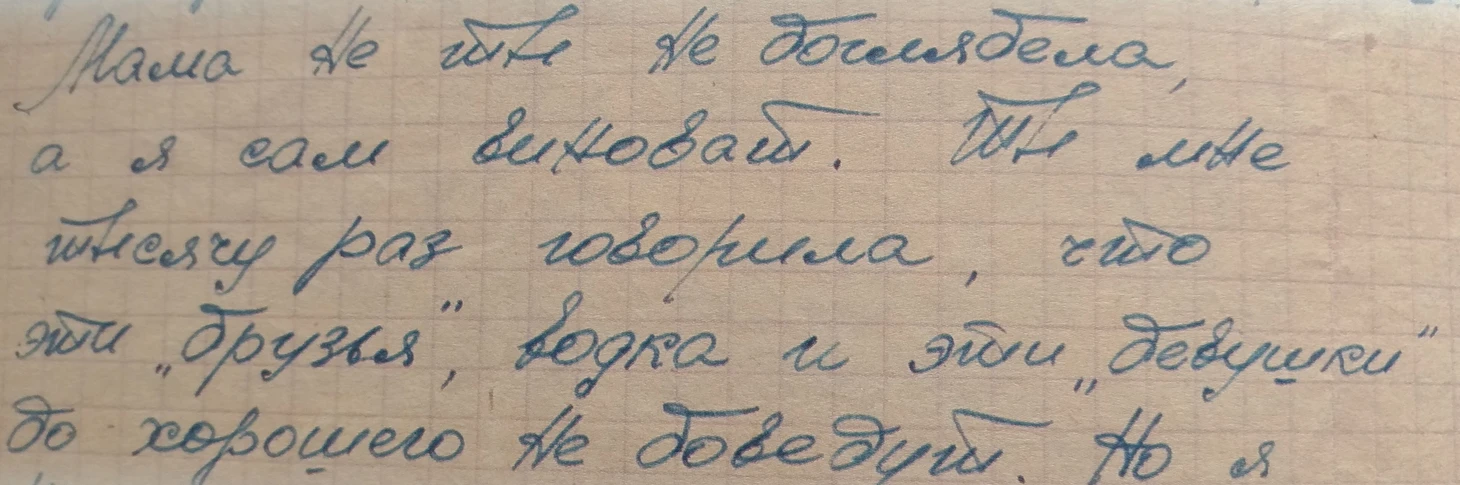 Мама не ты не доглядела,
а я сам виноват. Ты мне
тысячу раз говорила, что
эти „друзья", водка и эти „девушки"
до хорошего не доведут. Но я